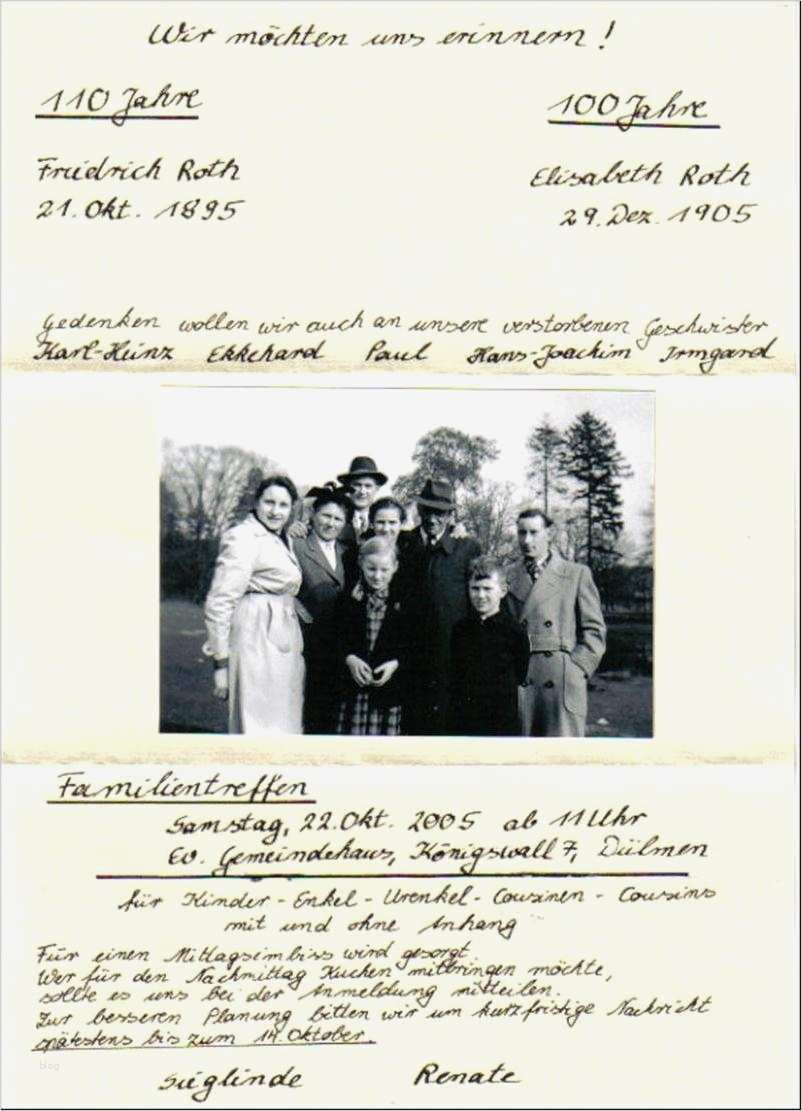 Wir möchten uns erinnern !
110 Jahre
100 Jahre
Friedrich Roth
Elisabeth Roth
21. Okt. 1895
29. Dez. 1905
Gedenken wollen wir auch an unsere verstorbenen Geschwister
Karl-Heinz Ekkehard Paul Hans-Joachim Irmgard
Familientreffen
Samstag, 22. Okt. 2005 ab 11 Uhr
Ev. Gemeindehaus, Königswall 7, Dülmen
für Kinder - Enkel - Urenkel - Cousinen - Cousins
mit und ohne Anhang
Für einen Mittagsimbiss wird gesorgt.
Wer für den Nachmittag Kuchen mitbringen möchte,
sollte es uns bei der Anmeldung mitteilen.
Zur besseren Planung bitten wir um kurzfristige Nachricht
spätestens bis zum 14. Oktober.
blog
Sieglinde Renate